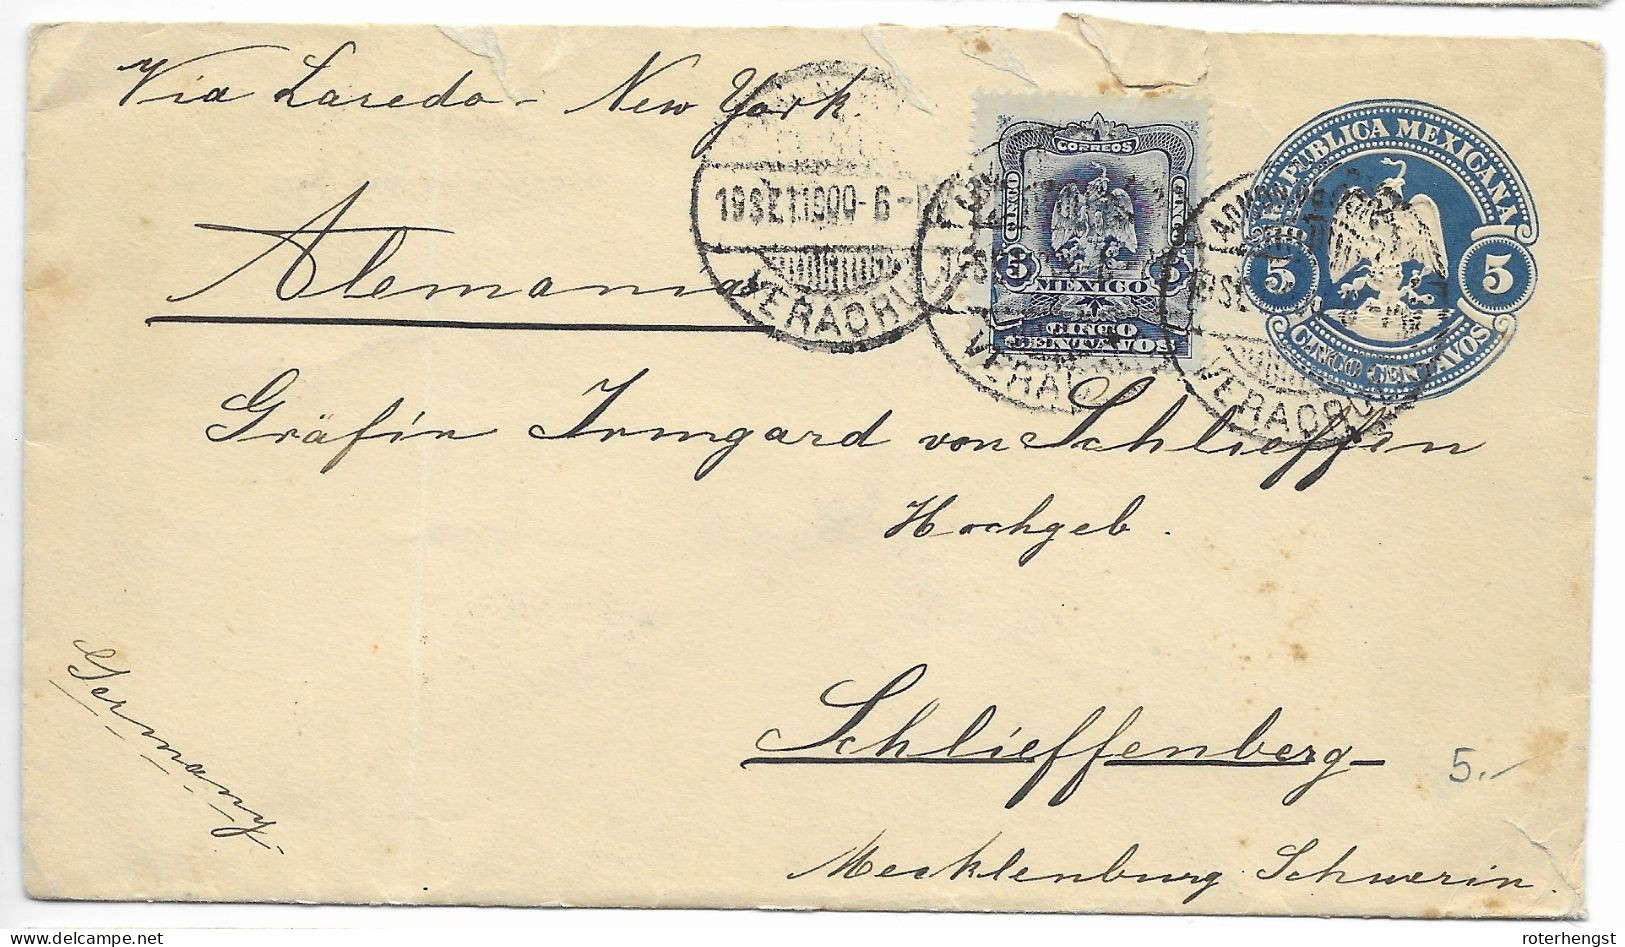 Via Laredo - New York.
Alemania
Gräfin Irmgard von Schlieffen
Hochgeb.
Schlieffenberg
Mecklenburg Schwerin.
Germany.
5.-
CORREOS
CINCO
5
5
MEXICO
CINCO
CENTAVOS
REPUBLICA MEXICANA
5
5
CINCO CENTAVOS
VERACRUZ
VERA
VERACRU
roterhengst
delcampe.net